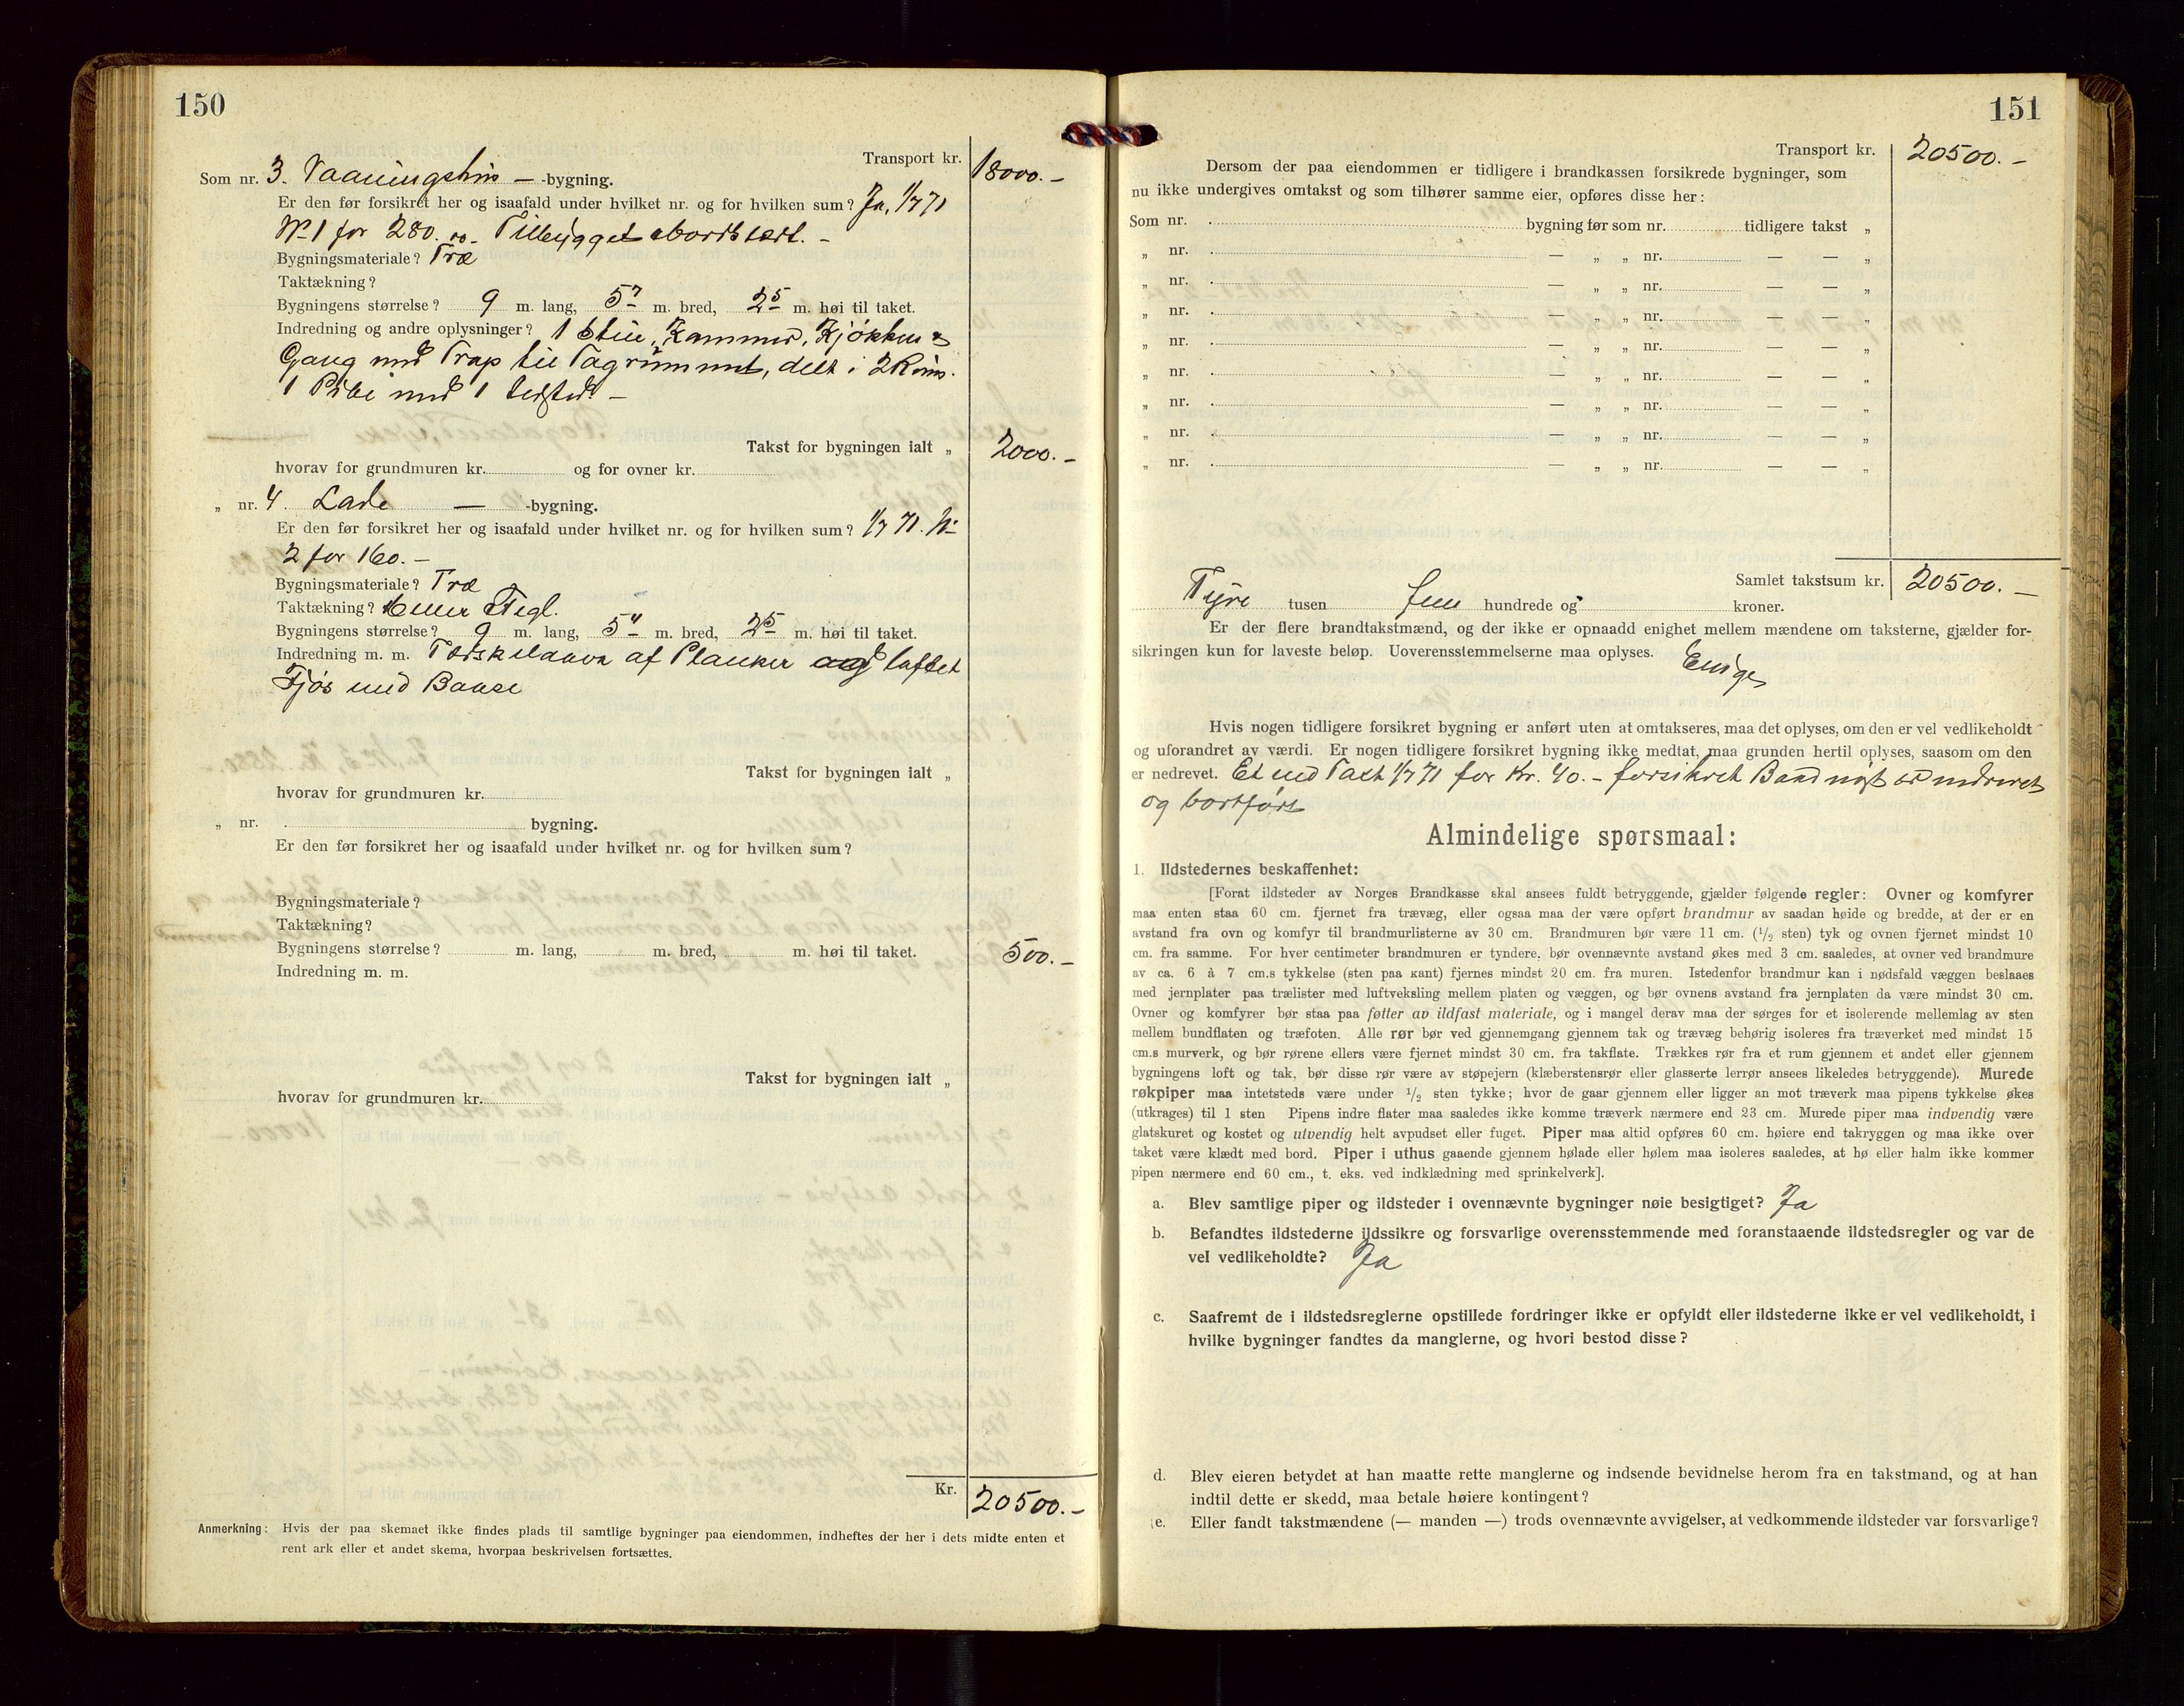 150
Transport kr. 18000.-
Som nr. 3. Vaaningshus - -bygning.
Er den før forsikret her og isaafald under hvilket nr. og for hvilken sum? Ja, 1/7 71
No 1 for 280.00 - Tilbygget
Bygningsmateriale? Træ
Taktækning?
Bygningens størrelse? 9 m. lang, 5 7 m. bred, 2 5 m. høi til taket.
Indredning og andre oplysninger? 1 Stue, Kammer, Kjøkken &
Gang med Trap til Tagrummet, delt i 2 Rum.
1 Pibe med 1 Ildsted. -
Takst for bygningen ialt „ 2000.-
hvorav for grundmuren kr. og for ovner kr.
„ nr. 4. Lade - -bygning.
Er den før forsikret her og isaafald under hvilket nr. og for hvilken sum? 1/7 71. No
2 for 160.-
Bygningsmateriale? Træ
Taktækning? Heller Tegl.
Bygningens størrelse? 9 m. lang, 5 4 m. bred, 2 5 m. høi til taket.
Indredning m. m. Tærskelaave af Planker og luftet
Fjøs med Baase
Takst for bygningen ialt „
hvorav for grundmuren kr.
„ nr. . bygning.
Er den før forsikret her og isaafald under hvilket nr. og for hvilken sum?
Bygningsmateriale?
Taktækning?
Bygningens størrelse? m. lang, m. bred, m. høi til taket. 500.-
Indredning m. m.
Takst for bygningen ialt „
hvorav for grundmuren kr.
Kr. 20500.-
Anmerkning: Hvis der paa skemaet ikke findes plads til samtlige bygninger paa eiendommen, indheftes der her i dets midte enten et
rent ark eller et andet skema, hvorpaa beskrivelsen fortsættes.
151
Transport kr. 20500.-
Dersom der paa eiendommen er tidligere i brandkassen forsikrede bygninger, som
nu ikke undergives omtakst og som tilhører samme eier, opføres disse her:
Som nr. . bygning før som nr. tidligere takst „
„ nr. . — „ „ nr. — — „
„ nr. . — „ „ nr. — — „
„ nr. . — „ „ nr. — — „
„ nr. . — „ „ nr. — — „
„ nr. . — „ „ nr. — — „
„ nr. . — „ „ nr. — — „
„ nr. . — „ „ nr. — — „
„ nr. . — „ „ nr. — — „
Samlet takstsum kr. 20500.-
Tyve tusen fem hundrede og kroner.
Er der flere brandtakstmænd, og der ikke er opnaadd enighet mellem mændene om taksterne, gjælder for-
sikringen kun for laveste beløp. Uoverensstemmelserne maa oplyses. Enige
Hvis nogen tidligere forsikret bygning er anført uten at omtakseres, maa det oplyses, om den er vel vedlikeholdt
og uforandret av værdi. Er nogen tidligere forsikret bygning ikke medtat, maa grunden hertil oplyses, saasom om den
er nedrevet. Et ved Taxt 1/7 71 for Kr. 40.- forsikret Baadnøst er nedrevet
og bortført
Almindelige spørsmaal:
1. Ildstedernes beskaffenhet:
[Forat ildsteder av Norges Brandkasse skal ansees fuldt betryggende, gjælder følgende regler: Ovner og komfyrer
maa enten staa 60 cm. fjernet fra trævæg, eller ogsaa maa der være opført brandmur av saadan høide og bredde, at der er en
avstand fra ovn og komfyr til brandmurlisterne av 30 cm. Brandmuren bør være 11 cm. (1/2 sten) tyk og ovnen fjernet mindst 10
cm. fra samme. For hver centimeter brandmuren er tyndere, bør ovennævnte avstand økes med 3 cm. saaledes, at ovner ved brandmure
av ca. 6 à 7 cm.s tykkelse (sten paa kant) fjernes mindst 20 cm. fra muren. Istedenfor brandmur kan i nødsfald væggen beslaaes
med jernplater paa trælister med luftveksling mellem platen og væggen, og bør ovnens avstand fra jernplaten da være mindst 30 cm.
Ovner og komfyrer bør staa paa føtter av ildfast materiale, og i mangel derav maa der sørges for et isolerende mellemlag av sten
mellem bundflaten og træfoten. Alle rør bør ved gjennemgang gjennem tak og trævæg behørig isoleres fra træverket med mindst 15
cm.s murverk, og bør rørene ellers være fjernet mindst 30 cm. fra takflate. Trækkes rør fra et rum gjennem et andet eller gjennem
bygningens loft og tak, bør disse rør være av støpejern (klæberstensrør eller glasserte lerrør ansees likeledes betryggende). Murede
røkpiper maa intetsteds være under 1/2 sten tykke; hvor de gaar gjennem eller ligger an mot træverk maa pipens tykkelse økes
(utkrages) til 1 sten Pipens indre flater maa saaledes ikke komme træverk nærmere end 23 cm. Murede piper maa indvendig være
glatskuret og kostet og utvendig helt avpudset eller fuget. Piper maa altid opføres 60 cm. høiere end takryggen og maa ikke over
taket være klædt med bord. Piper i uthus gaaende gjennem hølade eller hølem maa isoleres saaledes, at hø eller halm ikke kommer
pipen nærmere end 60 cm., t. eks. ved indklædning med sprinkelverk].
a. Blev samtlige piper og ildsteder i ovennævnte bygninger nøie besigtiget? Ja
b. Befandtes ildstederne ildssikre og forsvarlige overensstemmende med foranstaaende ildstedsregler og var de
vel vedlikeholdte? Ja
c. Saafremt de i ildstedsreglerne opstillede fordringer ikke er opfyldt eller ildstederne ikke er vel vedlikeholdt, i
hvilke bygninger fandtes da manglerne, og hvori bestod disse?
d. Blev eieren betydet at han maatte rette manglerne og indsende bevidnelse herom fra en takstmand, og at han
indtil dette er skedd, maa betale høiere kontingent?
e. Eller fandt takstmændene (— manden —) trods ovennævnte avvigelser, at vedkommende ildsteder var forsvarlige?